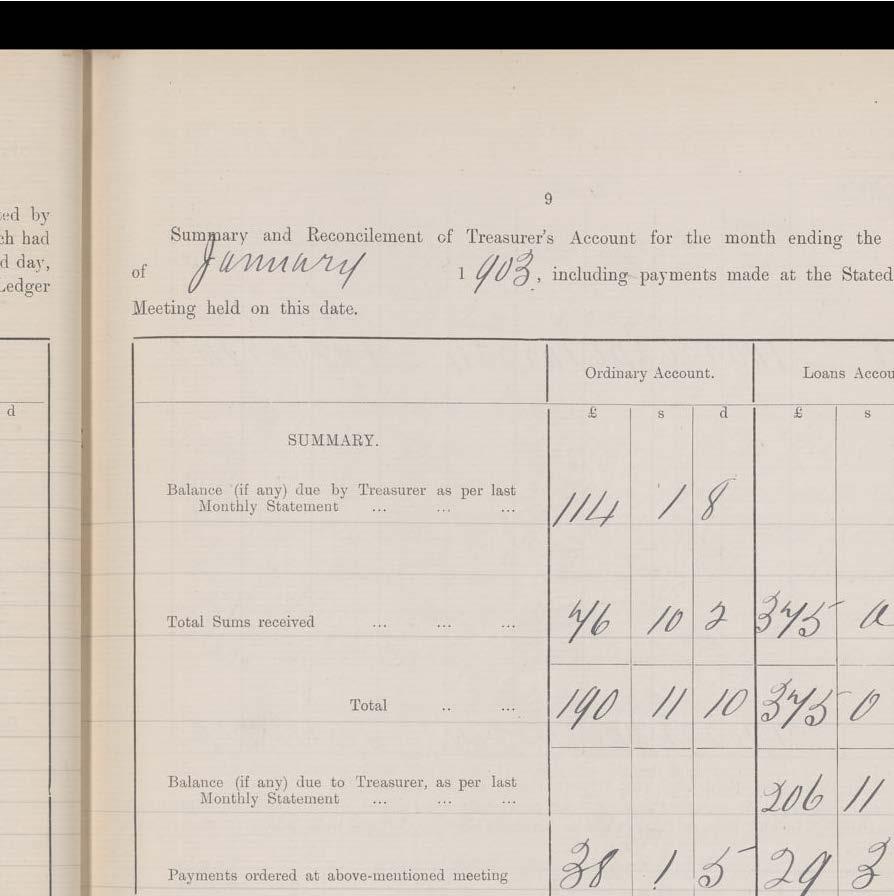 ted by
ch had
d day,
Ledger
d
9
Summary and Reconcilement of Treasurer's Account for the month ending the
of January 1903, including payments made at the Stated
Meeting held on this date.
Ordinary Account. Loans Accou
£ s d £ s
SUMMARY.
Balance (if any) due by Treasurer as per last
Monthly Statement ... ... ... 114 1 8
Total Sums received ... ... ... 76 10 2 375 0
Total .. ... 190 11 10 375 0
Balance (if any) due to Treasurer, as per last
Monthly Statement ... ... ... 206 11
Payments ordered at above-mentioned meeting 38 1 5 29 3